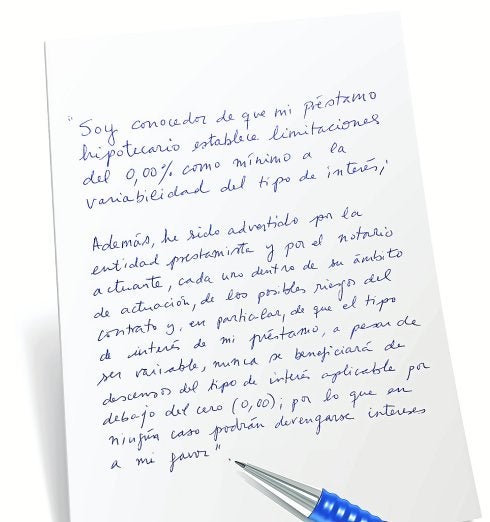 "Soy conocedor de que mi préstamo
hipotecario establece limitaciones
del 0,00% como mínimo a la
variabilidad del tipo de interés;
Además, he sido advertido por la
entidad prestamista y por el notario
actuante, cada uno dentro de su ámbito
de actuación, de los posibles riesgos del
contrato y, en particular, de que el tipo
de interés de mi préstamo, a pesar de
ser variable, nunca se beneficiará de
descensos del tipo de interés aplicable por
debajo del cero (0,00); por lo que en
ningún caso podrán devengarse intereses
a mi favor".